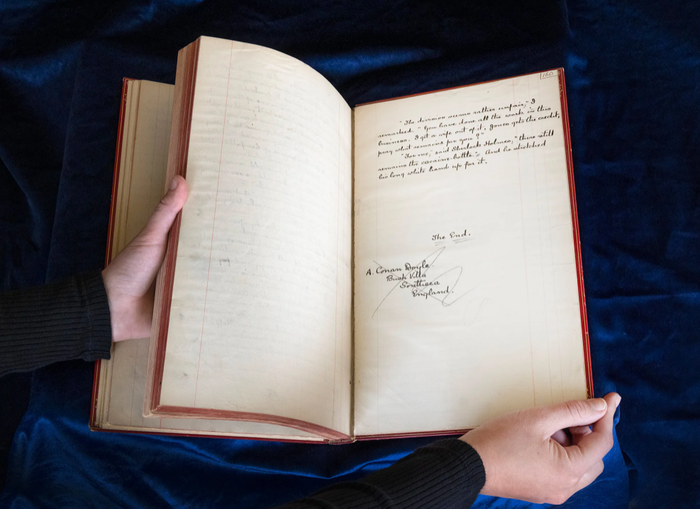 160
"The division seems rather unfair," I
remarked. "You have done all the work in this
business. I get a wife out of it, Jones gets the credit;
pray what remains for you?"
"For me," said Sherlock Holmes, "there still
remains the cocaine-bottle." And he stretched
his long white hand up for it.
The End.
A. Conan Doyle
Bush Villa
Southsea
England.